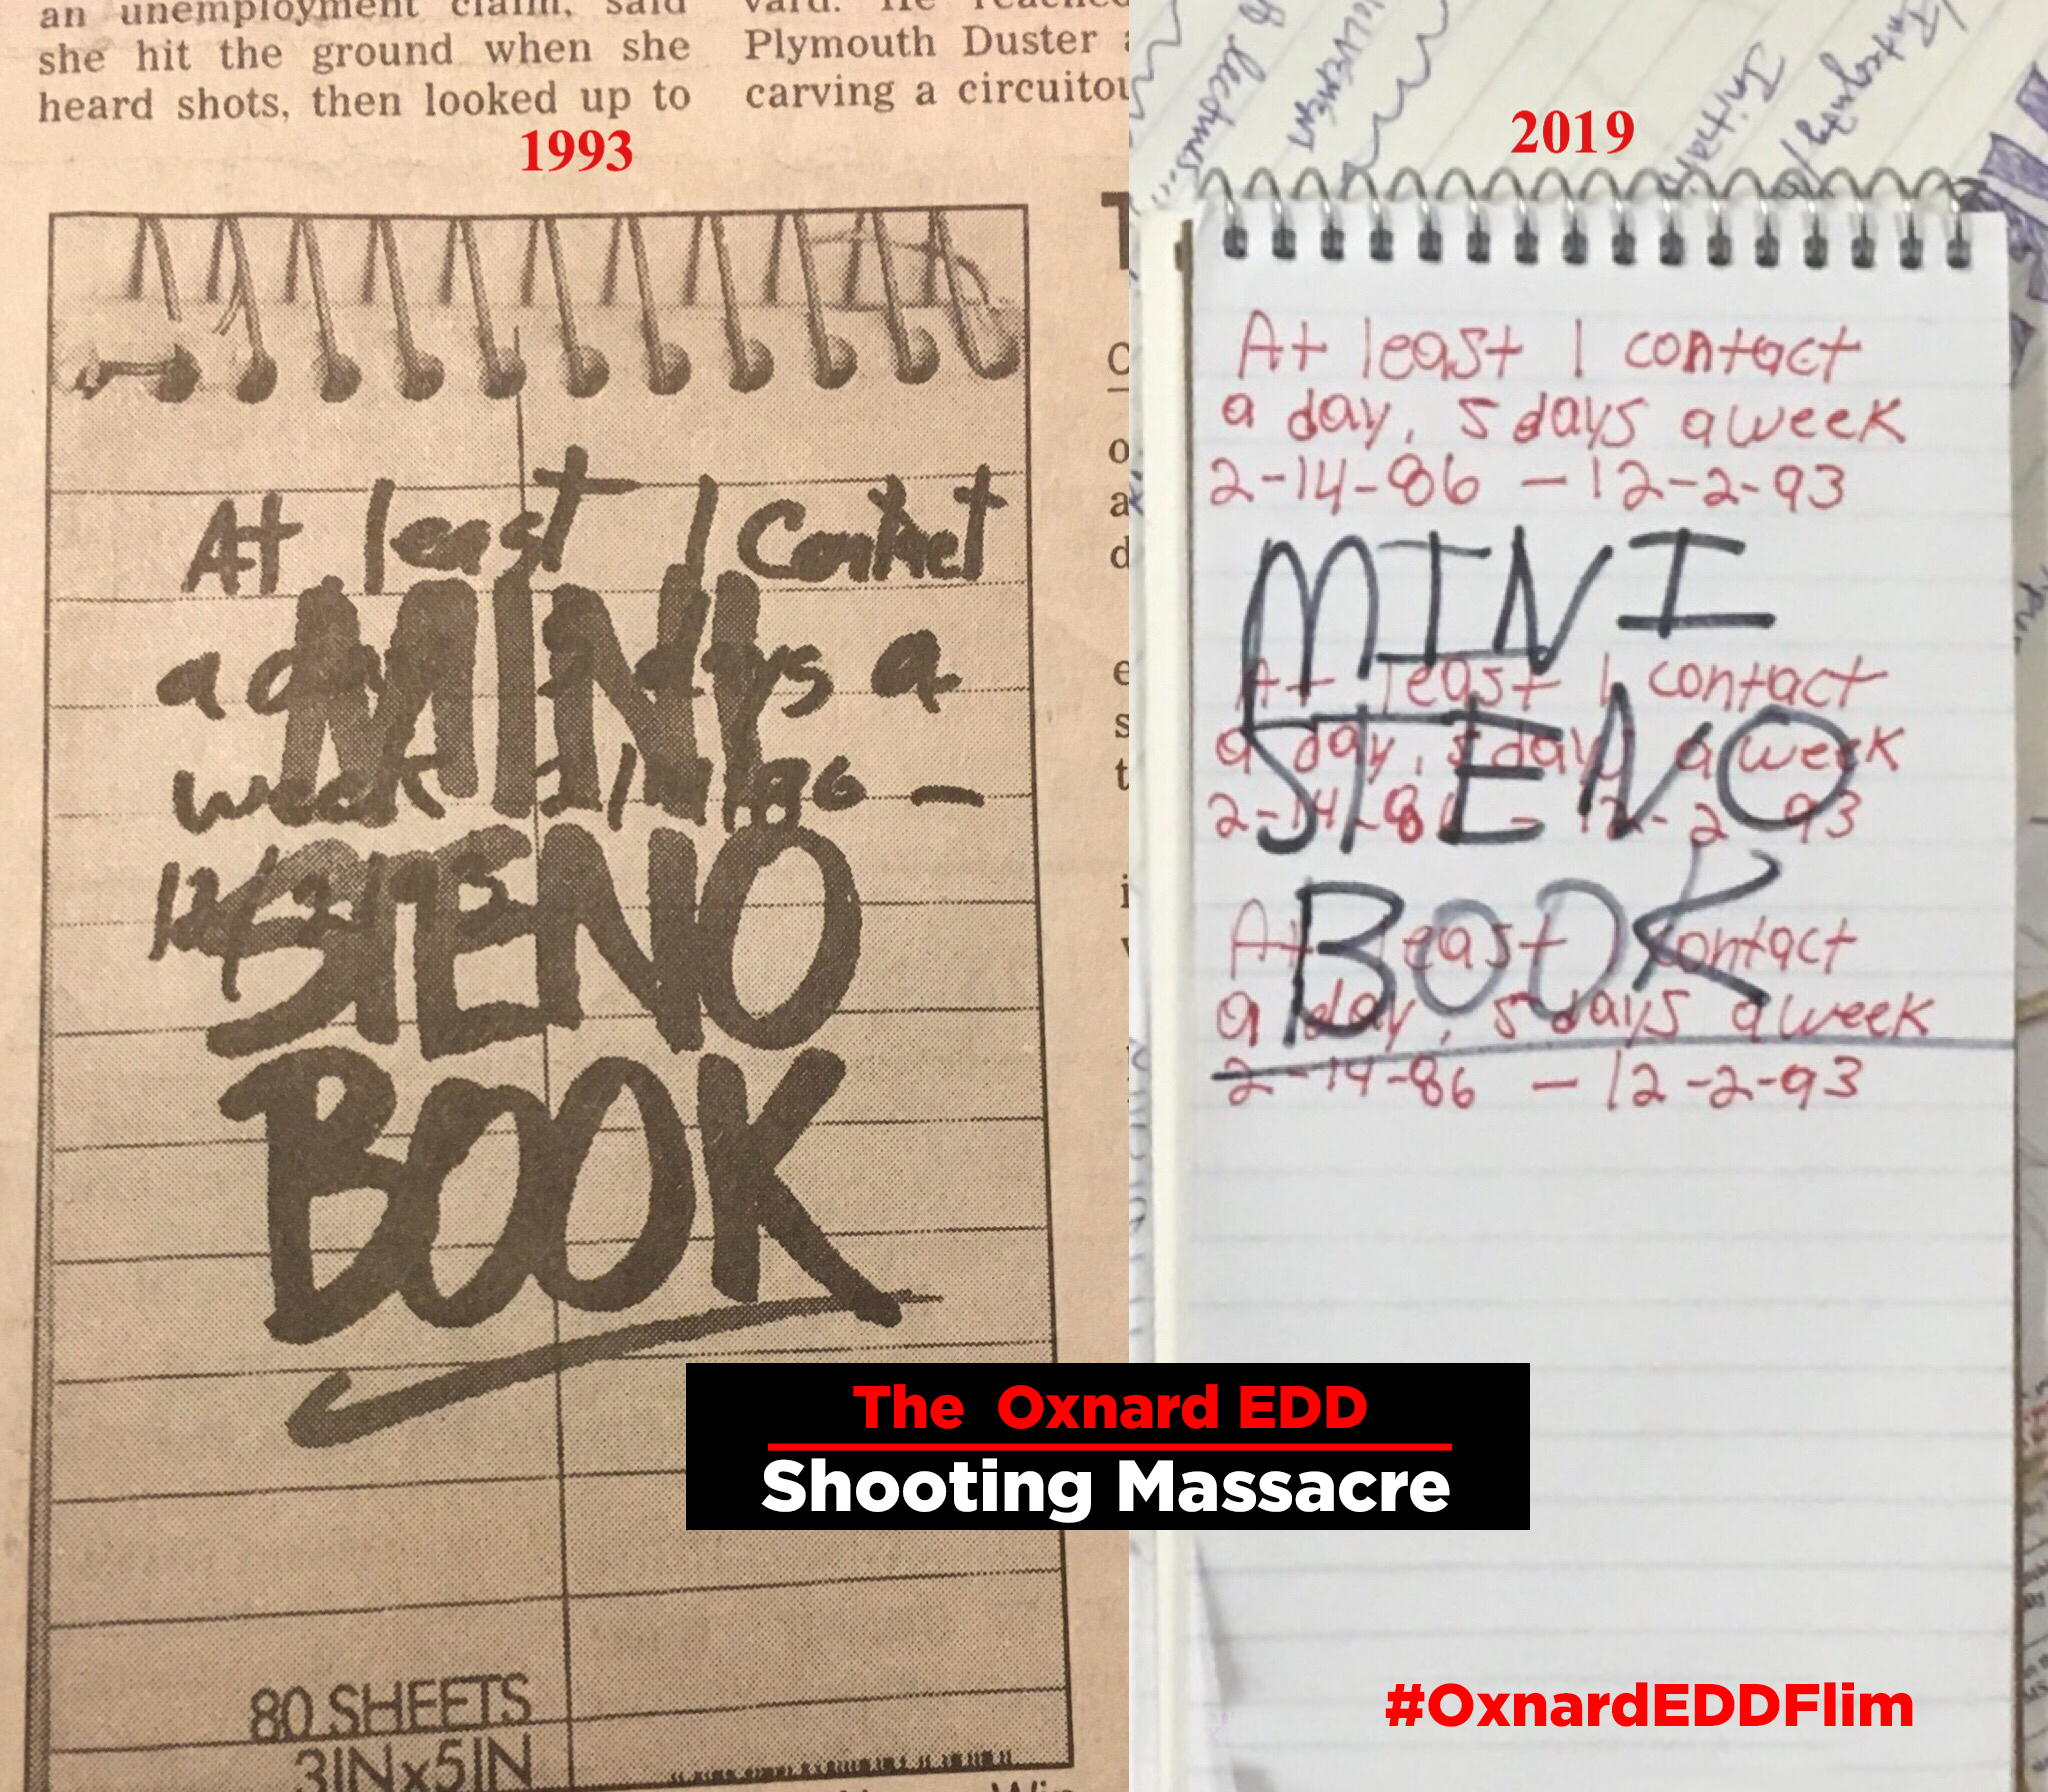 an unemployment claim, said
she hit the ground when she
heard shots, then looked up to
Plymouth Duster
carving a
1993
At least 1 Contact
a day 5 days a
week 2/14/86 –
12/2/93
MINI
STENO
BOOK
80 SHEETS
3INx5IN
2019
At least 1 contact
a day, 5 days a week
2-14-86 – 12-2-93
MINI
At least 1 contact
a day, 5 days a week
2-14-86 – 12-2-93
STENO
At least 1 contact
a day, 5 days a week
2-14-86 – 12-2-93
BOOK
The Oxnard EDD
Shooting Massacre
#OxnardEDDFlim